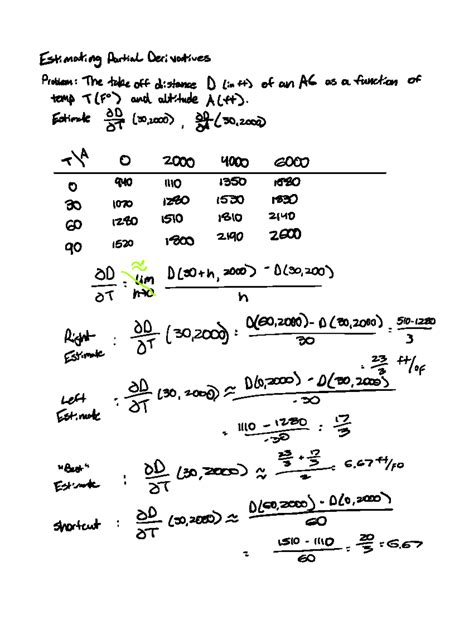 Estimating Partial Derivatives
Problem: The take off distance D (in ft) of an A6 as a function of
temp T (F°) and altitude A (ft).
Estimate ∂D/∂T (30,2000) , ∂D/∂A (30,2000)
T\A 0 2000 4000 6000
0 940 1110 1350 1680
30 1070 1280 1530 1830
60 1280 1510 1810 2140
90 1520 1800 2190 2600
≈
∂D/∂T = lim h→0 D(30+h, 2000) - D(30,200) / h
Right Estimate : ∂D/∂T (30,2000) = D(60,2000) - D(30,2000) / 30 = 510-1280 / 3
= 23/3 ft/°F
Left Estimate : ∂D/∂T (30, 2000) ≈ D(0,2000) - D(30,2000) / -30
= 1110 - 1280 / -30 = 17/3
"Best" Estimate : ∂D/∂T (30,2000) ≈ 23/3 + 17/3 / 2 = 6.67 ft/F°
shortcut : ∂D/∂T (30,2000) ≈ D(60,2000) - D(0,2000) / 60
= 1510 - 1110 / 60 = 20/3 = 6.67